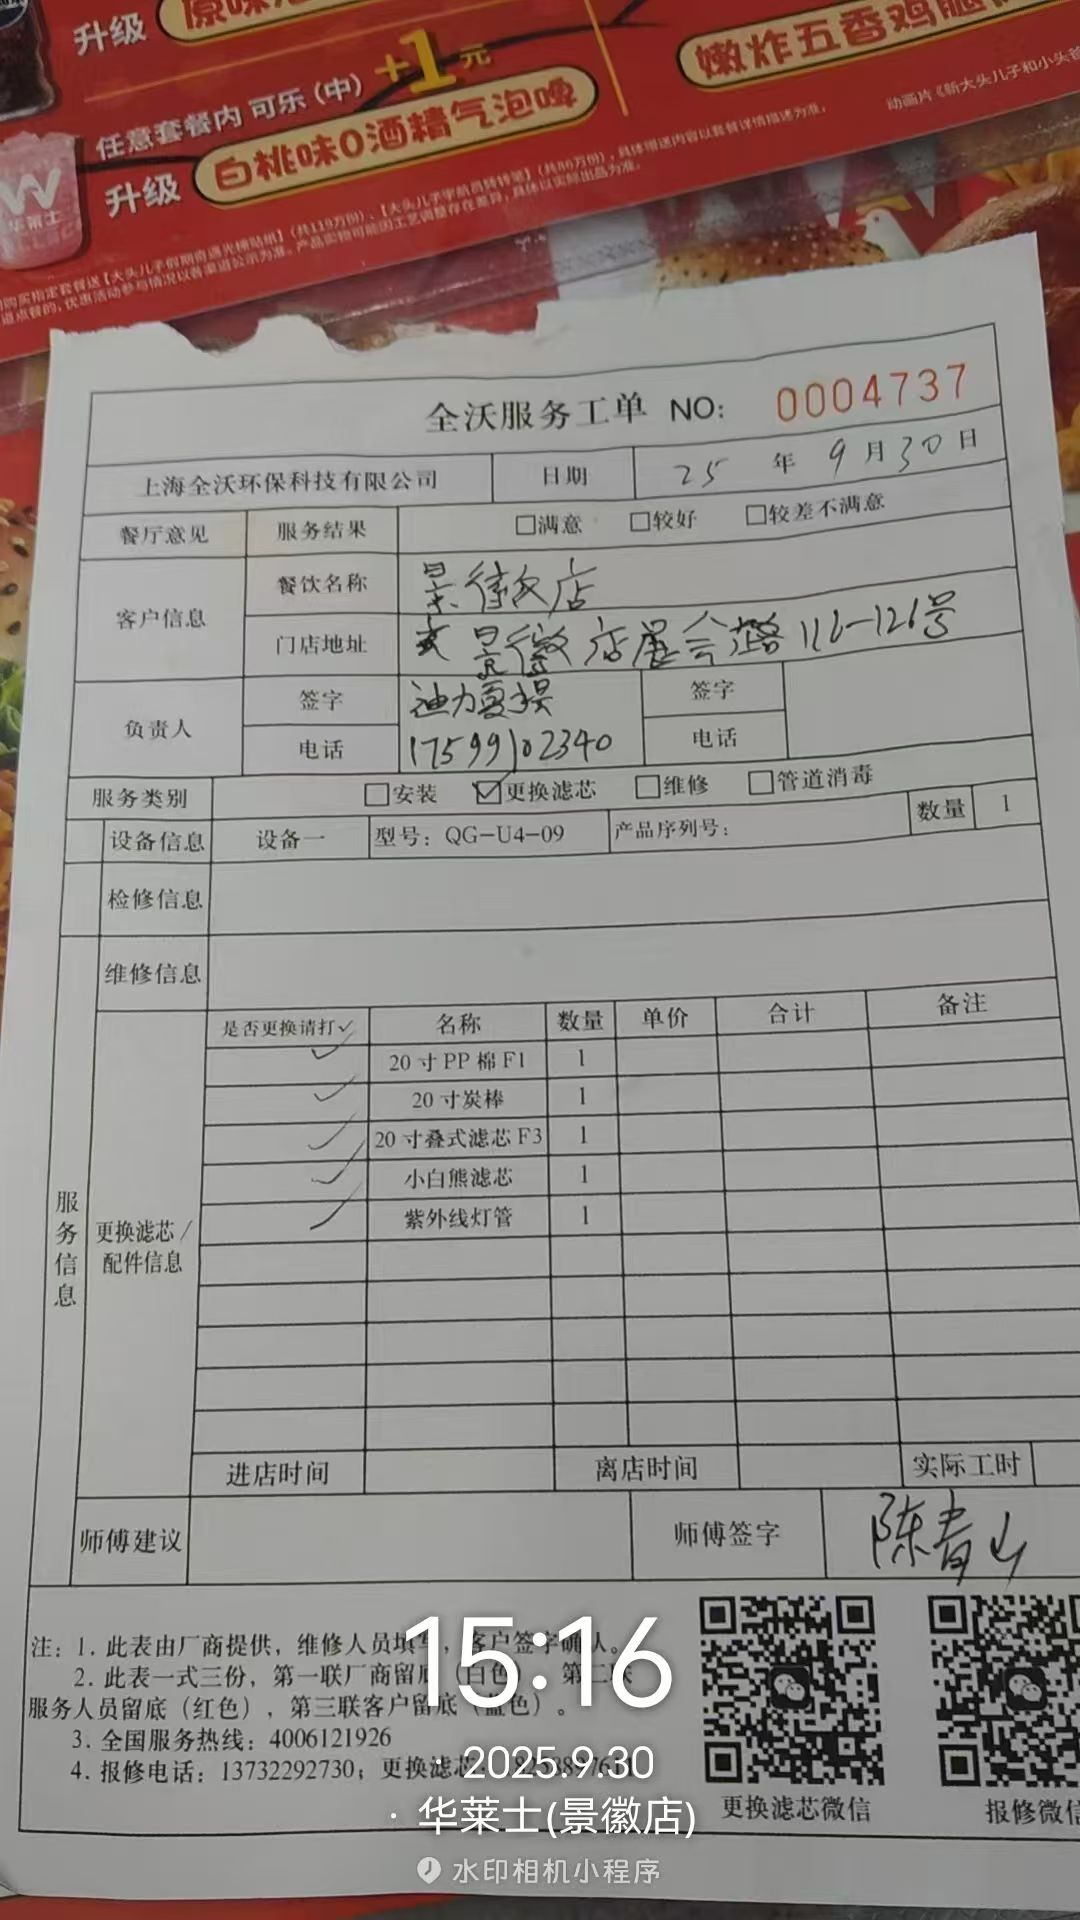 升级
任意套餐内 可乐(中) +1元
升级 白桃味0酒精气泡啤
嫩炸五香鸡腿
动画片《新大头儿子和小头爸
W
华莱士
全沃服务工单 NO: 0004737
上海全沃环保科技有限公司 日期 25年9月30日
餐厅意见 服务结果 □满意 □较好 □较差不满意
客户信息 餐饮名称 景徽店
门店地址 景徽店展会路116-126号
负责人 签字 签字
电话 17599102340 电话
服务类别 □安装 ☑更换滤芯 □维修 □管道消毒
设备信息 设备一 型号: QG-U4-09 产品序列号: 数量 1
检修信息
维修信息
服务信息
更换滤芯/配件信息
是否更换请打✓ 名称 数量 单价 合计 备注
✓ 20寸PP棉F1 1
✓ 20寸炭棒 1
✓ 20寸叠式滤芯F3 1
✓ 小白熊滤芯 1
✓ 紫外线灯管 1
进店时间 离店时间 实际工时
师傅建议 师傅签字 陈春山
注: 1. 此表由厂商提供, 维修人员填写, 客户签字确认。
2. 此表一式三份, 第一联厂商留底(白色), 第二联
服务人员留底(红色), 第三联客户留底(蓝色)。
3. 全国服务热线: 4006121926
4. 报修电话: 13732292730; 更换滤芯:
更换滤芯微信
报修微信
15:16
· 2025.9.30
· 华莱士(景徽店)
水印相机小程序